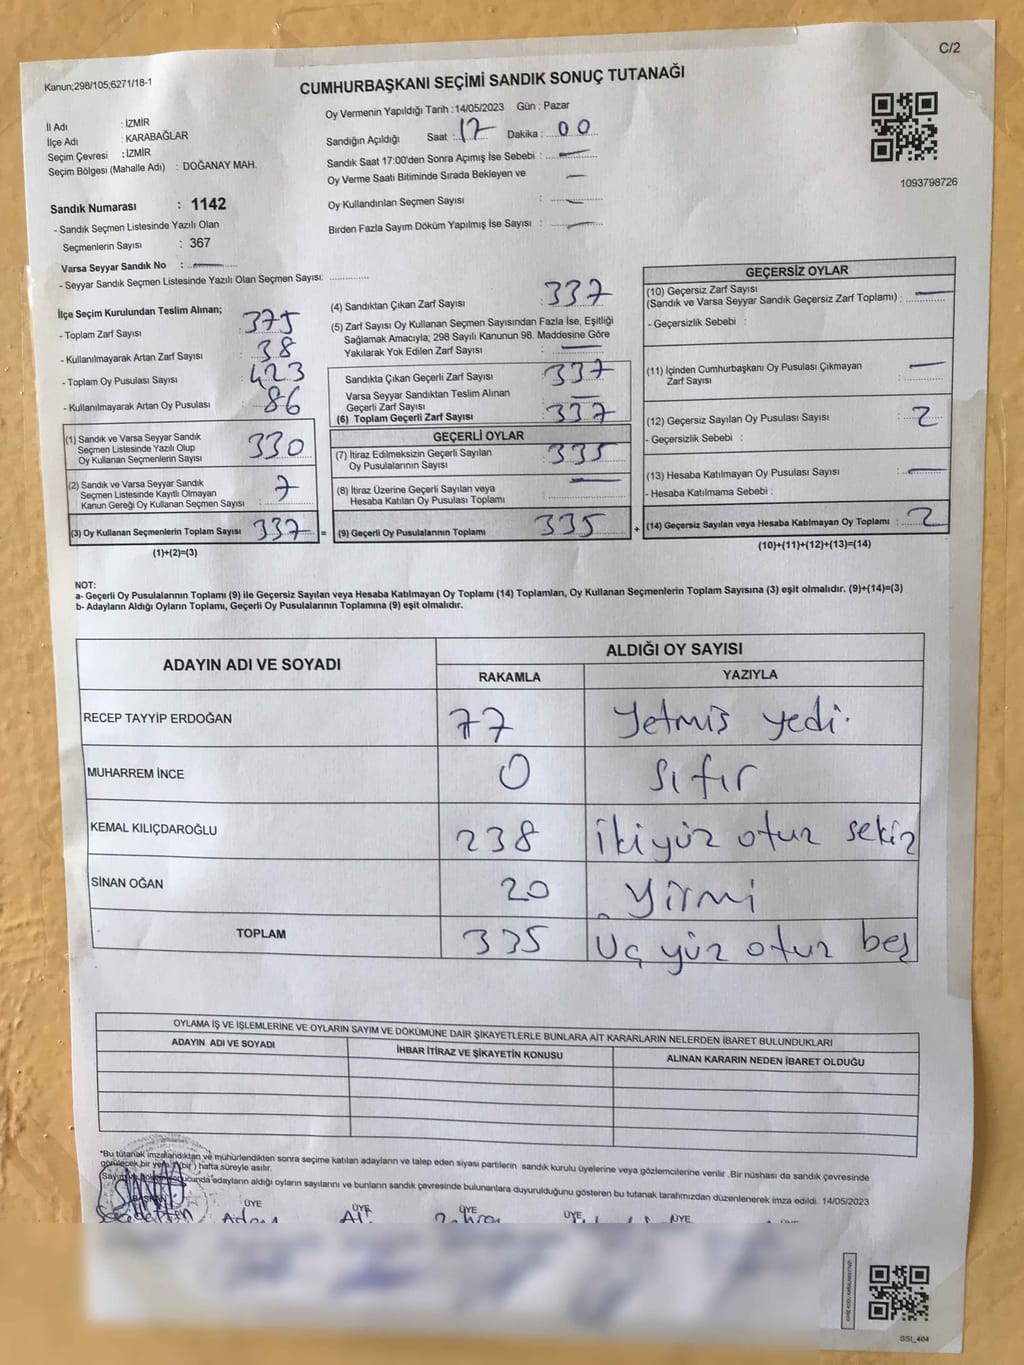 C/2
Kanun;298/105;6271/18-1
CUMHURBAŞKANI SEÇİMİ SANDIK SONUÇ TUTANAĞI
İl Adı : İZMİR
İlçe Adı : KARABAĞLAR
Seçim Çevresi : İZMİR
Seçim Bölgesi (Mahalle Adı) : DOĞANAY MAH.
Oy Vermenin Yapıldığı Tarih : 14/05/2023 Gün : Pazar
Sandığın Açıldığı Saat : 17 Dakika : 00
Sandık Saat 17:00'den Sonra Açımış İse Sebebi : —
Oy Verme Saati Bitiminde Sırada Bekleyen ve —
Oy Kullandırılan Seçmen Sayısı : —
Birden Fazla Sayım Döküm Yapılmış İse Sayısı : —
1093798726
Sandık Numarası : 1142
- Sandık Seçmen Listesinde Yazılı Olan
Seçmenlerin Sayısı : 367
Varsa Seyyar Sandık No : —
- Seyyar Sandık Seçmen Listesinde Yazılı Olan Seçmen Sayısı: ..............
İlçe Seçim Kurulundan Teslim Alınan;
- Toplam Zarf Sayısı : 375
- Kullanılmayarak Artan Zarf Sayısı : 38
- Toplam Oy Pusulası Sayısı : 423
- Kullanılmayarak Artan Oy Pusulası : 86
(1) Sandık ve Varsa Seyyar Sandık
Seçmen Listesinde Yazılı Olup
Oy Kullanan Seçmenlerin Sayısı 330
(2) Sandık ve Varsa Seyyar Sandık
Seçmen Listesinde Kayıtlı Olmayan
Kanun Gereği Oy Kullanan Seçmen Sayısı 7
(3) Oy Kullanan Seçmenlerin Toplam Sayısı 337 =
(1)+(2)=(3)
(4) Sandıktan Çıkan Zarf Sayısı : 337
(5) Zarf Sayısı Oy Kullanan Seçmen Sayısından Fazla İse, Eşitliği
Sağlamak Amacıyla; 298 Sayılı Kanunun 98. Maddesine Göre
Yakılarak Yok Edilen Zarf Sayısı : —
Sandıkta Çıkan Geçerli Zarf Sayısı : 337
Varsa Seyyar Sandıktan Teslim Alınan
Geçerli Zarf Sayısı : —
(6) Toplam Geçerli Zarf Sayısı : 337
GEÇERLİ OYLAR
(7) İtiraz Edilmeksizin Geçerli Sayılan
Oy Pusulalarının Sayısı : 335
(8) İtiraz Üzerine Geçerli Sayılan veya
Hesaba Katılan Oy Pusulası Toplamı —
(9) Geçerli Oy Pusulalarının Toplamı 335 +
GEÇERSİZ OYLAR
(10) Geçersiz Zarf Sayısı
(Sandık ve Varsa Seyyar Sandık Geçersiz Zarf Toplamı) : —
- Geçersizlik Sebebi :
(11) İçinden Cumhurbaşkanı Oy Pusulası Çıkmayan
Zarf Sayısı : —
(12) Geçersiz Sayılan Oy Pusulası Sayısı : 2
- Geçersizlik Sebebi :
(13) Hesaba Katılmayan Oy Pusulası Sayısı : —
- Hesaba Katılmama Sebebi :
(14) Geçersiz Sayılan veya Hesaba Katılmayan Oy Toplamı : 2
(10)+(11)+(12)+(13)=(14)
NOT:
a- Geçerli Oy Pusulalarının Toplamı (9) ile Geçersiz Sayılan veya Hesaba Katılmayan Oy Toplamı (14) Toplamları, Oy Kullanan Seçmenlerin Toplam Sayısına (3) eşit olmalıdır. (9)+(14)=(3)
b- Adayların Aldığı Oyların Toplamı, Geçerli Oy Pusulalarının Toplamına (9) eşit olmalıdır.
ADAYIN ADI VE SOYADI ALDIĞI OY SAYISI
RAKAMLA YAZIYLA
RECEP TAYYİP ERDOĞAN 77 Yetmiş yedi.
MUHARREM İNCE 0 Sıfır
KEMAL KILIÇDAROĞLU 238 İkiyüz otuz sekiz
SİNAN OĞAN 20 Yirmi
TOPLAM 335 Üç yüz otuz beş
OYLAMA İŞ VE İŞLEMLERİNE VE OYLARIN SAYIM VE DÖKÜMÜNE DAİR ŞİKAYETLERLE BUNLARA AİT KARARLARIN NELERDEN İBARET BULUNDUKLARI
ADAYIN ADI VE SOYADI İHBAR İTİRAZ VE ŞİKAYETİN KONUSU ALINAN KARARIN NEDEN İBARET OLDUĞU
*Bu tutanak imzalandıktan ve mühürlendikten sonra seçime katılan adayların ve talep eden siyasi partilerin sandık kurulu üyelerine veya gözlemcilerine verilir .Bir nüshası da sandık çevresinde
görülecek bir yere (bir) hafta süreyle asılır.
adayların aldığı oyların sayılarını ve bunların sandık çevresinde bulunanlara duyurulduğunu gösteren bu tutanak tarafımızdan düzenlenerek imza edildi. 14/05/2023
ÜYE ÜYE ÜYE ÜYE ÜYE
SSI_404